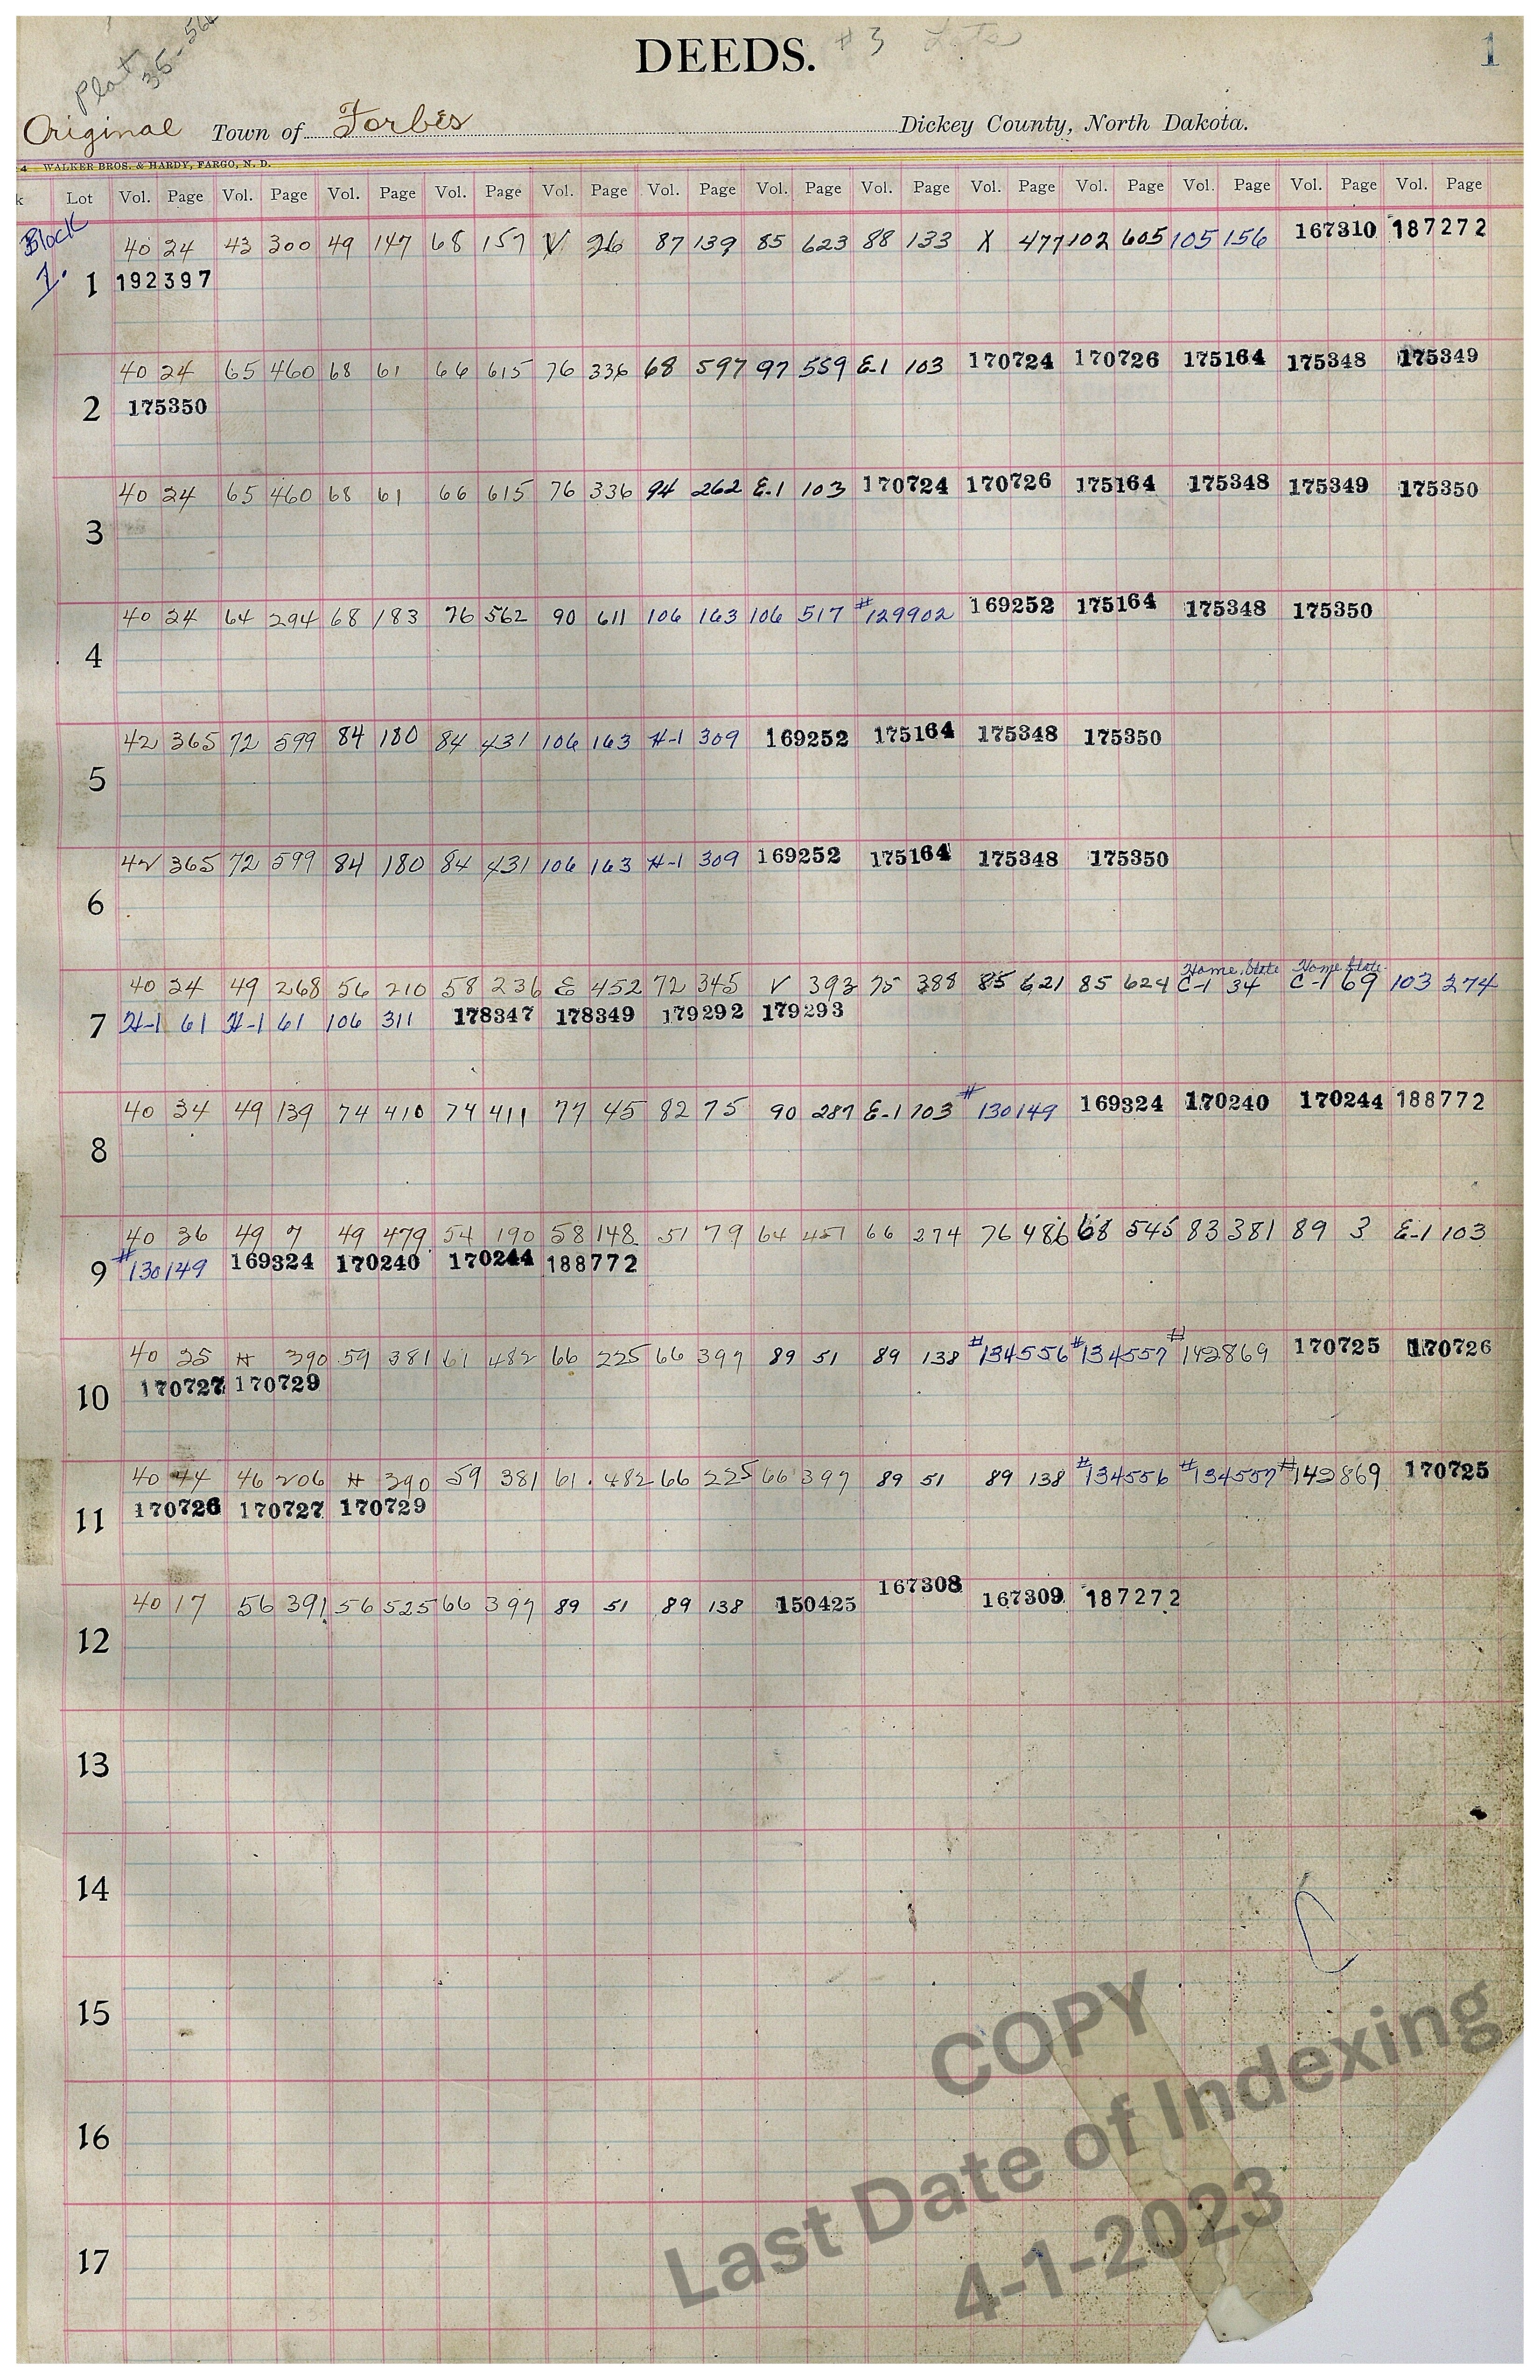 Plat
35-56
DEEDS. #3 Lots
1
Original Town of Forbes Dickey County, North Dakota.
4 WALKER BROS. & HARDY, FARGO, N. D.
k Lot Vol. Page Vol. Page Vol. Page Vol. Page Vol. Page Vol. Page Vol. Page Vol. Page Vol. Page Vol. Page Vol. Page Vol. Page Vol. Page
Block 40 24 43 300 49 147 68 157 V 26 87 139 85 623 88 133 X 477 102 605 105 156 167310 187272
1. 1 192397
40 24 65 460 68 61 66 615 76 336 68 597 97 559 E-1 103 170724 170726 175164 175348 175349
2 175350
40 24 65 460 68 61 66 615 76 336 94 262 E-1 103 170724 170726 175164 175348 175349 175350
3
40 24 64 294 68 183 76 562 90 611 106 163 106 517 #129902 169252 175164 175348 175350
4
42 365 72 599 84 180 84 431 106 163 H-1 309 169252 175164 175348 175350
5
42 365 72 599 84 180 84 431 106 163 H-1 309 169252 175164 175348 175350
6
Home State Home State
40 24 49 268 56 210 58 236 E 452 72 345 V 393 75 388 85 621 85 624 C-1 34 C-1 69 103 274
7 H-1 61 H-1 61 106 311 178347 178349 179292 179293
40 34 49 139 74 410 74 411 77 45 82 75 90 287 E-1 103 #130149 169324 170240 170244 188772
8
40 36 49 7 49 479 54 190 58 148 51 79 64 451 66 274 76 486 68 545 83 381 89 3 E-1 103
9 #130149 169324 170240 170244 188772
40 25 H 390 59 381 61 482 66 225 66 397 89 51 89 138 #134556 #134557 #142869 170725 170726
10 170727 170729
40 44 46 206 H 390 59 381 61 482 66 225 66 397 89 51 89 138 #134556 #134557 #142869 170725
11 170726 170727 170729
40 17 56 391 56 525 66 397 89 51 89 138 150425 167308 167309 187272
12
13
14
15
16
17
COPY
Last Date of Indexing
4-1-2023